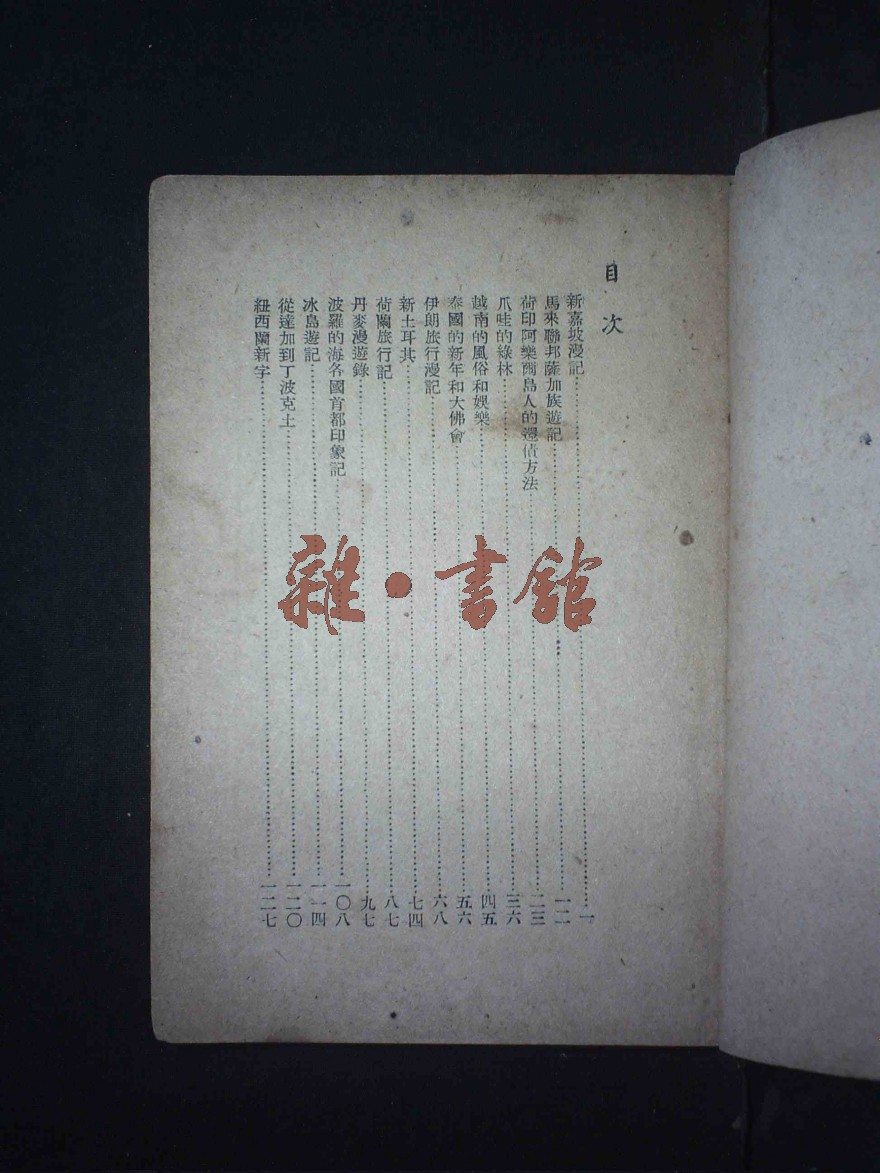 目次
新嘉坡漫記⋯⋯一
馬來聯邦薩加族遊記⋯⋯一二
荷印阿樂爾島人的還債方法⋯⋯二三
爪哇的綠林⋯⋯三六
越南的風俗和娛樂⋯⋯四五
泰國的新年和大佛會⋯⋯五六
伊朗旅行漫記⋯⋯六八
新土耳其⋯⋯七四
荷蘭旅行記⋯⋯八七
丹麥漫遊錄⋯⋯九七
波羅的海各國首都印象記⋯⋯一〇八
冰島遊記⋯⋯一一四
從達加到丁波克土⋯⋯一二〇
紐西蘭新字⋯⋯一二七
雜·書館